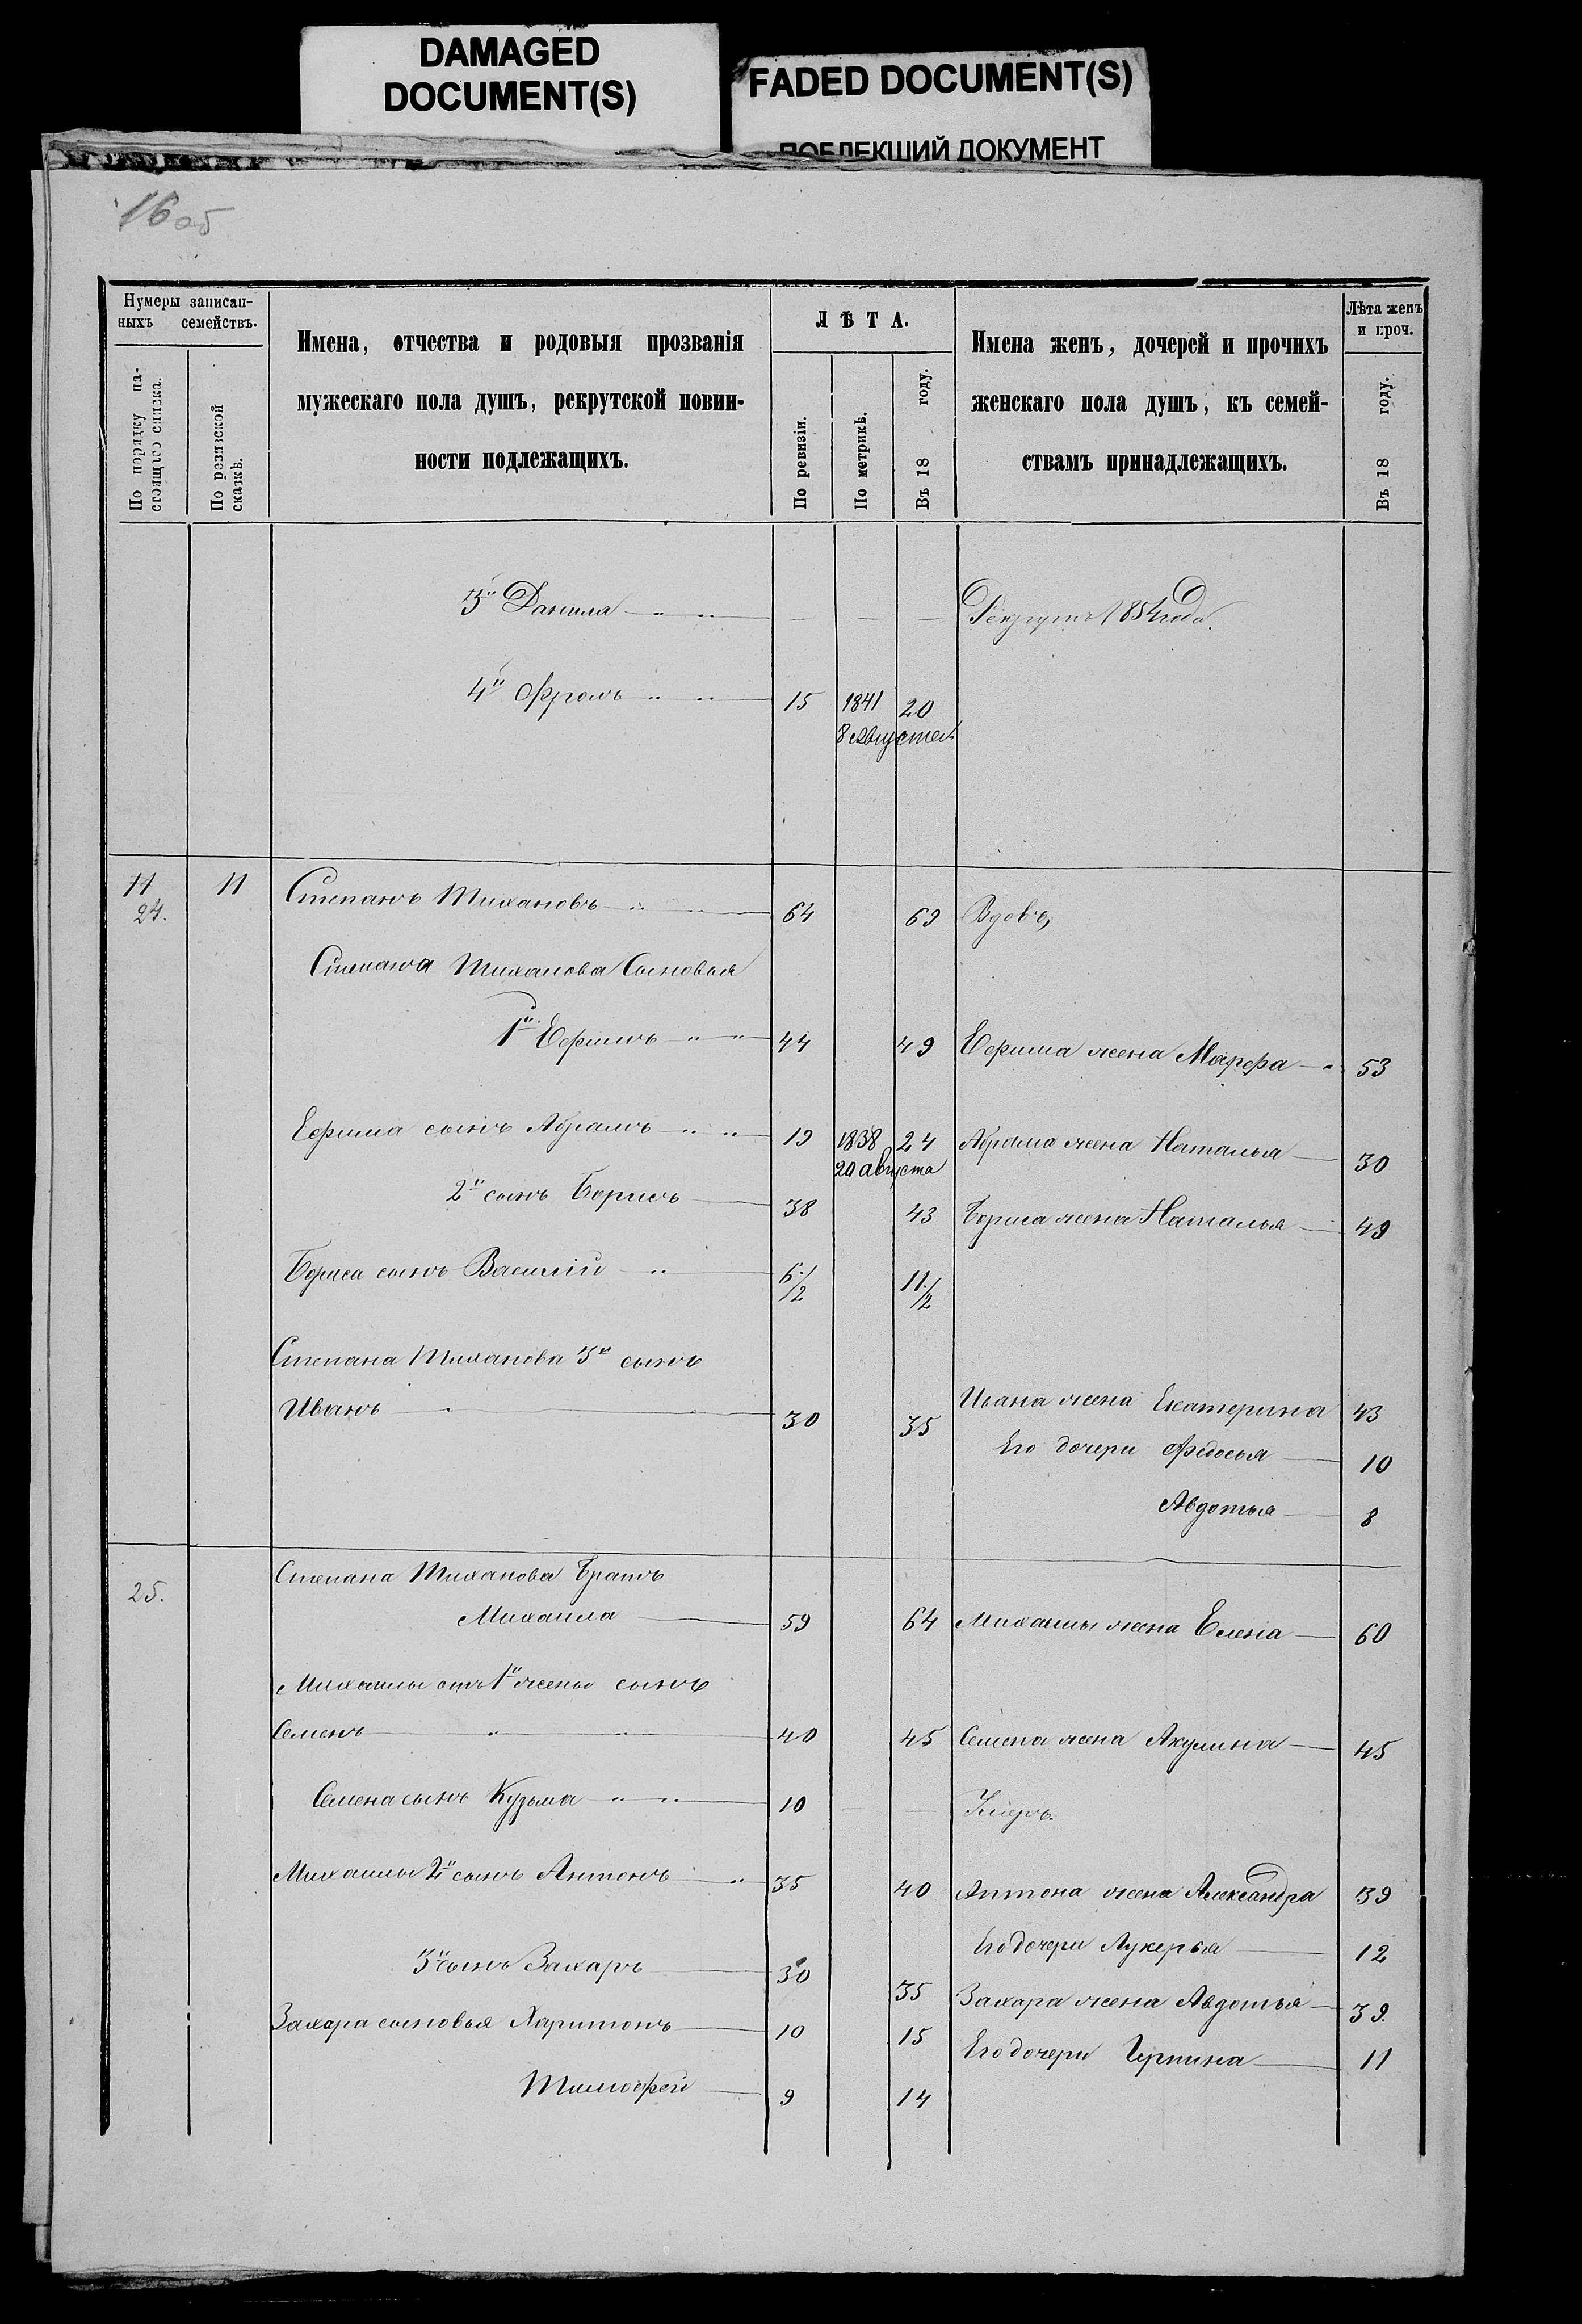 DAMAGED
DOCUMENT(S)
FADED DOCUMENT(S)
ПОБЛЕКШИЙ ДОКУМЕНТ
16 об
Нумеры записан-
ныхъ семействъ.
По порядку на-
стоящаго списка.
По ревизской
сказкѣ.
Имена, отчества и родовыя прозванія
мужескаго пола душъ, рекрутской повин-
ности подлежащихъ.
ЛѢТА.
По ревизіи.
По метрикѣ.
Въ 18 году.
Имена женъ, дочерей и прочихъ
женскаго пола душъ, къ семей-
ствамъ принадлежащихъ.
Лѣта женъ
и проч.
Въ 18 году.
3й Данила — — — Рекрутъ 1854 года.
4й Фролъ 15 1841 20
8 Августа
11 11 Степанъ Тихановъ 64 69 Вдовъ
24.
Степана Тиханова Сыновья
1й Ефимъ 44 49 Ефима жена Марфа 53
Ефима сынъ Абрамъ 19 1838 24 Абрама жена Наталья 30
20 августа
2й сынъ Борисъ 38 43 Бориса жена Наталья 49
Бориса сынъ Василій 6 1/2 11 1/2
Степана Тиханова 3й сынъ
Иванъ 30 35 Ивана жена Екатерина 43
Его дочери Федосья 10
Авдотья 8
25. Степана Тиханова Братъ
Михаила 59 64 Михаилы жена Елена 60
Михаилы отъ 1й жены сынъ
Семенъ 40 45 Семена жена Акулина 45
Семена сынъ Кузьма 10 — — Умеръ.
Михаилы 2й сынъ Антонъ 35 40 Антона жена Александра 39
Его дочери Лукерья 12
3й сынъ Захаръ 30 35 Захара жена Авдотья 39.
Захара сыновья Харитонъ 10 15
Его дочери 11
Тимофей 9 14